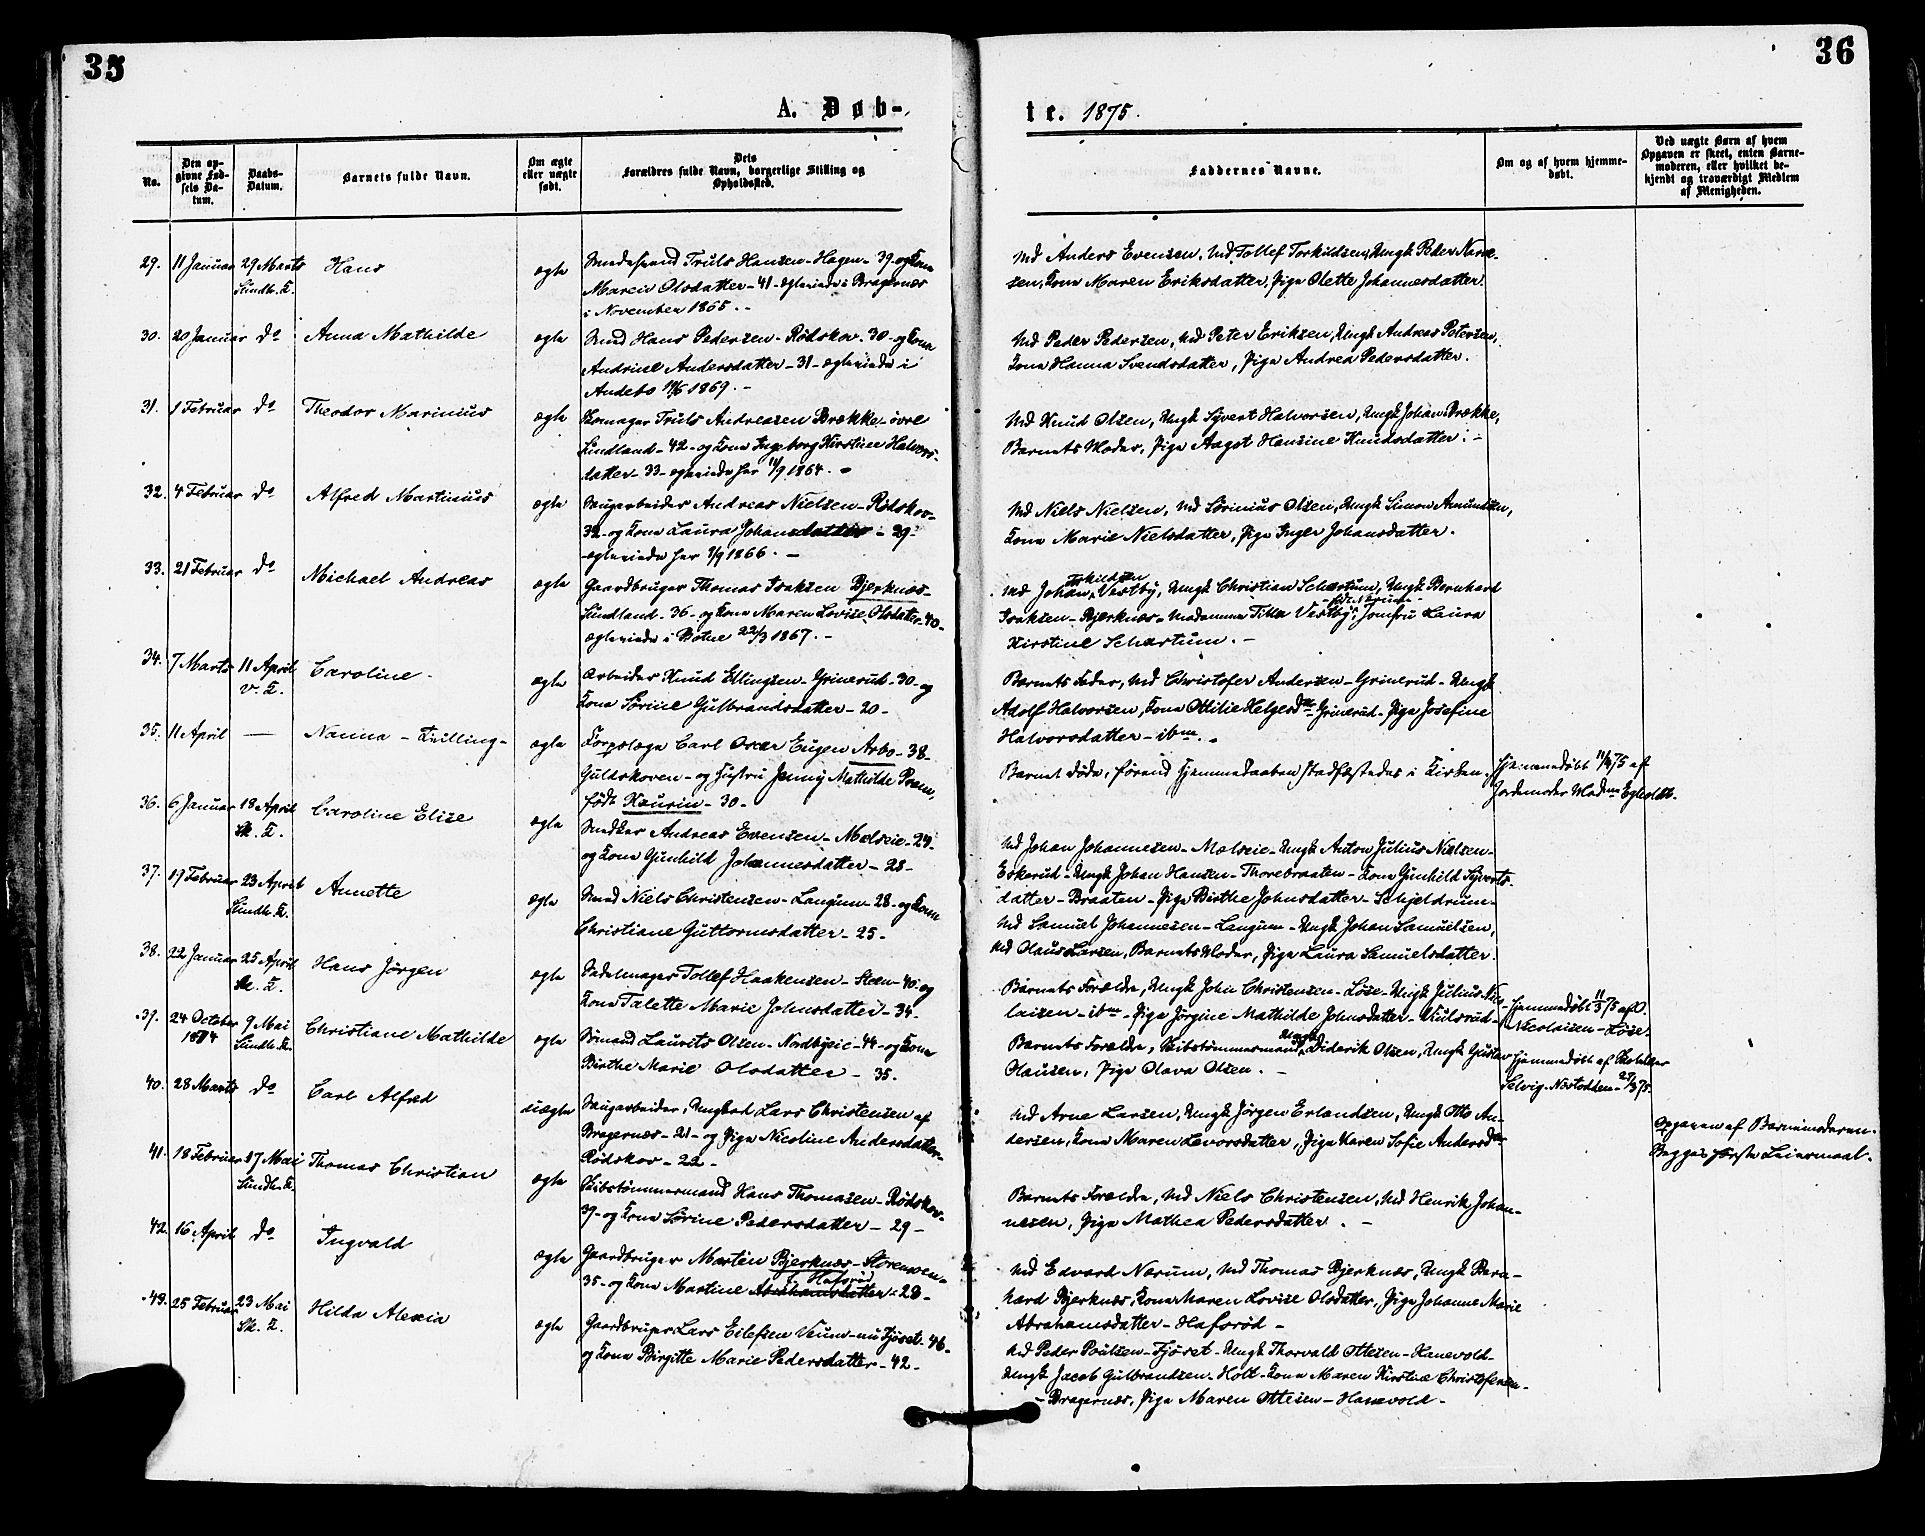 35
36
A. Døb-
te. 1875.
No.
Den op-
givne Fød-
sels Da-
tum.
Daabs-
Datum.
Barnets fulde Navn.
Om ægte
eller uægte
født.
Dets
Forældres fulde Navn, borgerlige Stilling og
Opholdssted.
Faddernes Navne.
Om og af hvem hjemme-
døbt.
Ved uægte Børn af hvem
Opgaven er skeet, enten Barne-
moderen, eller hvilket be-
kjendt og troværdigt Medlem
af Menigheden.
29. 11 Januar 29 Marts Hans ægte Truls Hansen - Hagen - 39 - og Kone
Maren Olsdatter - 41 - ægteviede i Bragernæs
i November 1865. -
Md Anders Evensen, Md Tollef Torkildsen, Ungk Peder
sen, Kone Maren Eriksdatter, Pige Olette Johannesdatter.
30. 20 Januar do Anna Mathilde ægte Smed Hans Pedersen - Rødskov - 30 - og Kone
Andrine Andersdatter - 31 - ægteviede i
Andebo 1869. -
Md Peder Pedersen, Md Peter Eriksen, Ungk Andreas Petersen,
Kone Hanna Svendsdatter, Pige Andrea Pedersdatter.
31. 1 Februar do Theodor Marinius ægte Skomager Truls Andreasen Brække - øvre
Sundland - 42 - og Kone Ingeborg Kirstine Halvors-
datter - 33 - ægteviede her 11/9 1864. -
Md Knud Olsen, Ungk Syvert Halvorsen, Ungk Johan Brække,
Barnets Moder, Pige Aagot Hansine Knudsdatter. -
32. 4 Februar do Alfred Martinius ægte Saugarbeider Andreas Nielsen - Rødskov -
32 - og Kone Laura Johansdatter - 29 -
ægteviede her 1/9 1866. -
Md Niels Nielsen, Md Sørinius Olsen, Ungk Simon Amundsen,
Kone Marie Nielsdatter, Pige Inger Johansdatter.
33. 21 Februar do Michael Andreas ægte Gaardbruger Thomas Isaksen Bjerknæs -
Sundland - 36 - og Kone Maren Lovise Olsdatter - 40 -
ægteviede i Botne 22/3 1867. -
Md Johan Torkildsen Vestby, Ungk Christian Schartum, Ungk Bernhard
Isaksen - Bjerknæs - Madamme Tilla Vestby, Jomfru Laura
Kirstine Schartum. -
34. 7 Marts 11 April
v. K. Caroline - ægte Arbeider Knud Ellingsen - Grinerud - 30 - og
Kone Sørine Gulbrandsdatter - 20 -
Barnets Fader, Md Christofer Andersen - Grinerud - Ungk
Adolf Halvorsen, Kone Ottilie Helgesdtr Grinerud - Pige Josefine
Halvorsdatter - ibm. -
35. 11 April — Nanna - Tvilling - ægte Korpslæge Carl Oscar Eugen Arbo - 38 -
Guldskoven - og Hustru Jenny Mathilde
født Kaurin - 30 -
Barnet døde, førend Hjemmedaaben stadfæstedes i Kirken.
Hjemmedøbt 11/4 75 af
Jordemoder
36. 6 Januar 18 April
Sk. K. Caroline Elise ægte Snedker Andreas Evensen - Melseie - 24 -
og Kone Gunhild Johannesdatter - 28 -
Md Johan Johannesen - Melseie - Ungk Anton Julius Nielsen -
Eskerud - Ungk Johan Hansen - Thorebraaten - Kone Gunhild Syverts-
datter - Braaten - Pige Birthe Johnsdatter - Schjeldrum -
37. 19 Februar 23 April Annette ægte Smed Niels Christensen - Langum - 28 - og Kone
Christiane Guttormsdatter - 25 -
Md Samuel Johannesen - Langum - Ungk Johan Samuelsen,
Md Olaus Larsen, Barnets Moder, Pige Laura Samuelsdatter.
38. 22 Januar 25 April
Sk. K. Hans Jørgen ægte Sadelmager Tollef Haakensen - Steen - 40 - og
Kone Talette Marie Johnsdatter - 34 -
Barnets Forældre, Ungk John Christensen - Løse - Ungk Julius Nico-
laisen - ibm - Pige Jørgine Mathilde Johnsdatter -
Hjemmedøbt 11/3 75 af O.
Nicolaisen - Løse.
39. 24 October
1874 9 Mai Christiane Mathilde ægte Sømand Laurits Olsen - Nordbyeie - 44 - og Kone
Birthe Marie Olsdatter - 35.
Barnets Forældre, Skibstømmermand Ungk Diderik Olsen, Ungk Gustav
Olausen, Pige Olava Olsen. -
Hjemmedøbt af
Selvig - Næstodden - 75.
40. 28 Marts do Carl Alfred uægte Saugarbeider, Ungkarl Lars Christensen af
Bragernæs - 21 - og Pige Nicoline Andersdatter -
Rødskov - 22 -
Md Arne Larsen, Ungk Jørgen Erlandsen, Ungk Otto An-
dersen, Kone Maren Levorsdatter, Pige Karen Sofie Andersdtr
Opgaven af Barnemoderen.
Begges første Leiermaal.
41. 18 Februar 17 Mai Thomas Christian ægte Skibstømmermand Hans Thomasen - Rødskov -
39 - og Kone Sørine Pedersdatter - 29 -
Barnets Forældre, Md Niels Christensen, Md Henrik Johan-
nesen, Pige Mathea Pedersdatter. -
42. 16 April do Ingvald ægte Gaardbruger Martin Bjerknæs - Storensen -
35 - og Kone Martine Abrahamsdatter f. Haforød - 28 -
Md Edvard Narum, Md Thomas Bjerknæs, Ungk Bern-
hard Bjerknæs, Kone Maren Lovise Olsdatter, Pige Johanne Marie
Abrahamsdatter - Haforød -
43. 25 Februar 23 Mai
Sk. K. Hilda Alexia ægte Gaardbruger Lars Eilefsen Veum - nu Fjøset - 46 -
og Kone Birgitte Marie Pedersdatter - 42 -
Md Peder Poulsen - Fjøset - Ungk Thorvald Ottesen - Hanevold -
Ungk Jacob Gulbrandsen - Holt - Kone Maren Kirstine Christofersen -
- Bragernæs, Pige Maren Ottesen - Hanevold -